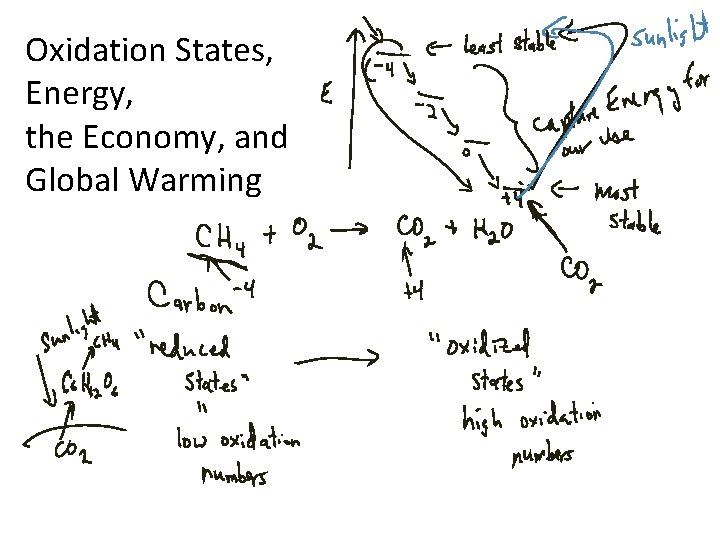 Oxidation States,
Energy,
the Economy, and
Global Warming
E
-4 ← least stable
sunlight
-2
0
+4 ← most
stable
capture Energy for
our use
CO2
CH4 + O2 → CO2 + H2O
Carbon -4
+4
Sunlight
CH4
C6H12O6
CO2
"reduced
states"
"
low oxidation
numbers
→
"oxidized
states"
high oxidation
numbers